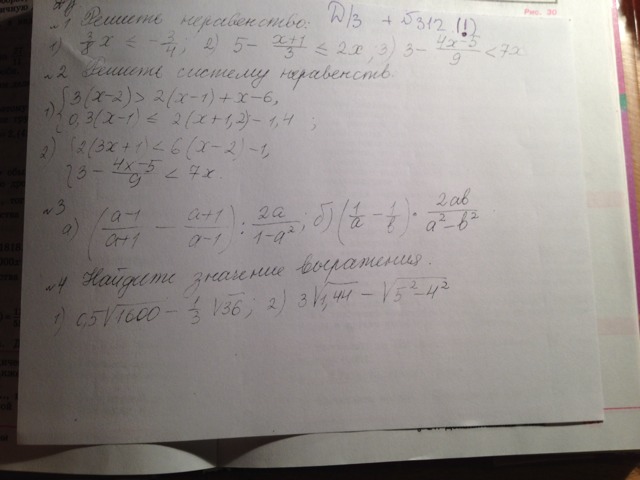 Рис. 30
№1 Решить неравенство: Д/З + №312 (!)
1) 3/8 x ≤ -3/4; 2) 5 - (x+1)/3 ≤ 2x; 3) 3 - (4x-5)/9 < 7x
№2 Решите систему неравенств.
1) { 3(x-2) > 2(x-1) + x - 6,
0,3(x-1) ≤ 2(x+1,2) - 1,4 ;
2) { 2(3x+1) < 6(x-2) - 1,
3 - (4x-5)/9 < 7x.
№3
а) ((a-1)/(a+1) - (a+1)/(a-1)) : 2a/(1-a²); б) (1/a - 1/b) · 2ab/(a²-b²)
№4 Найдите значение выражения.
1) 0,5√1600 - 1/3 √36; 2) 3√1,44 - √5²-4²